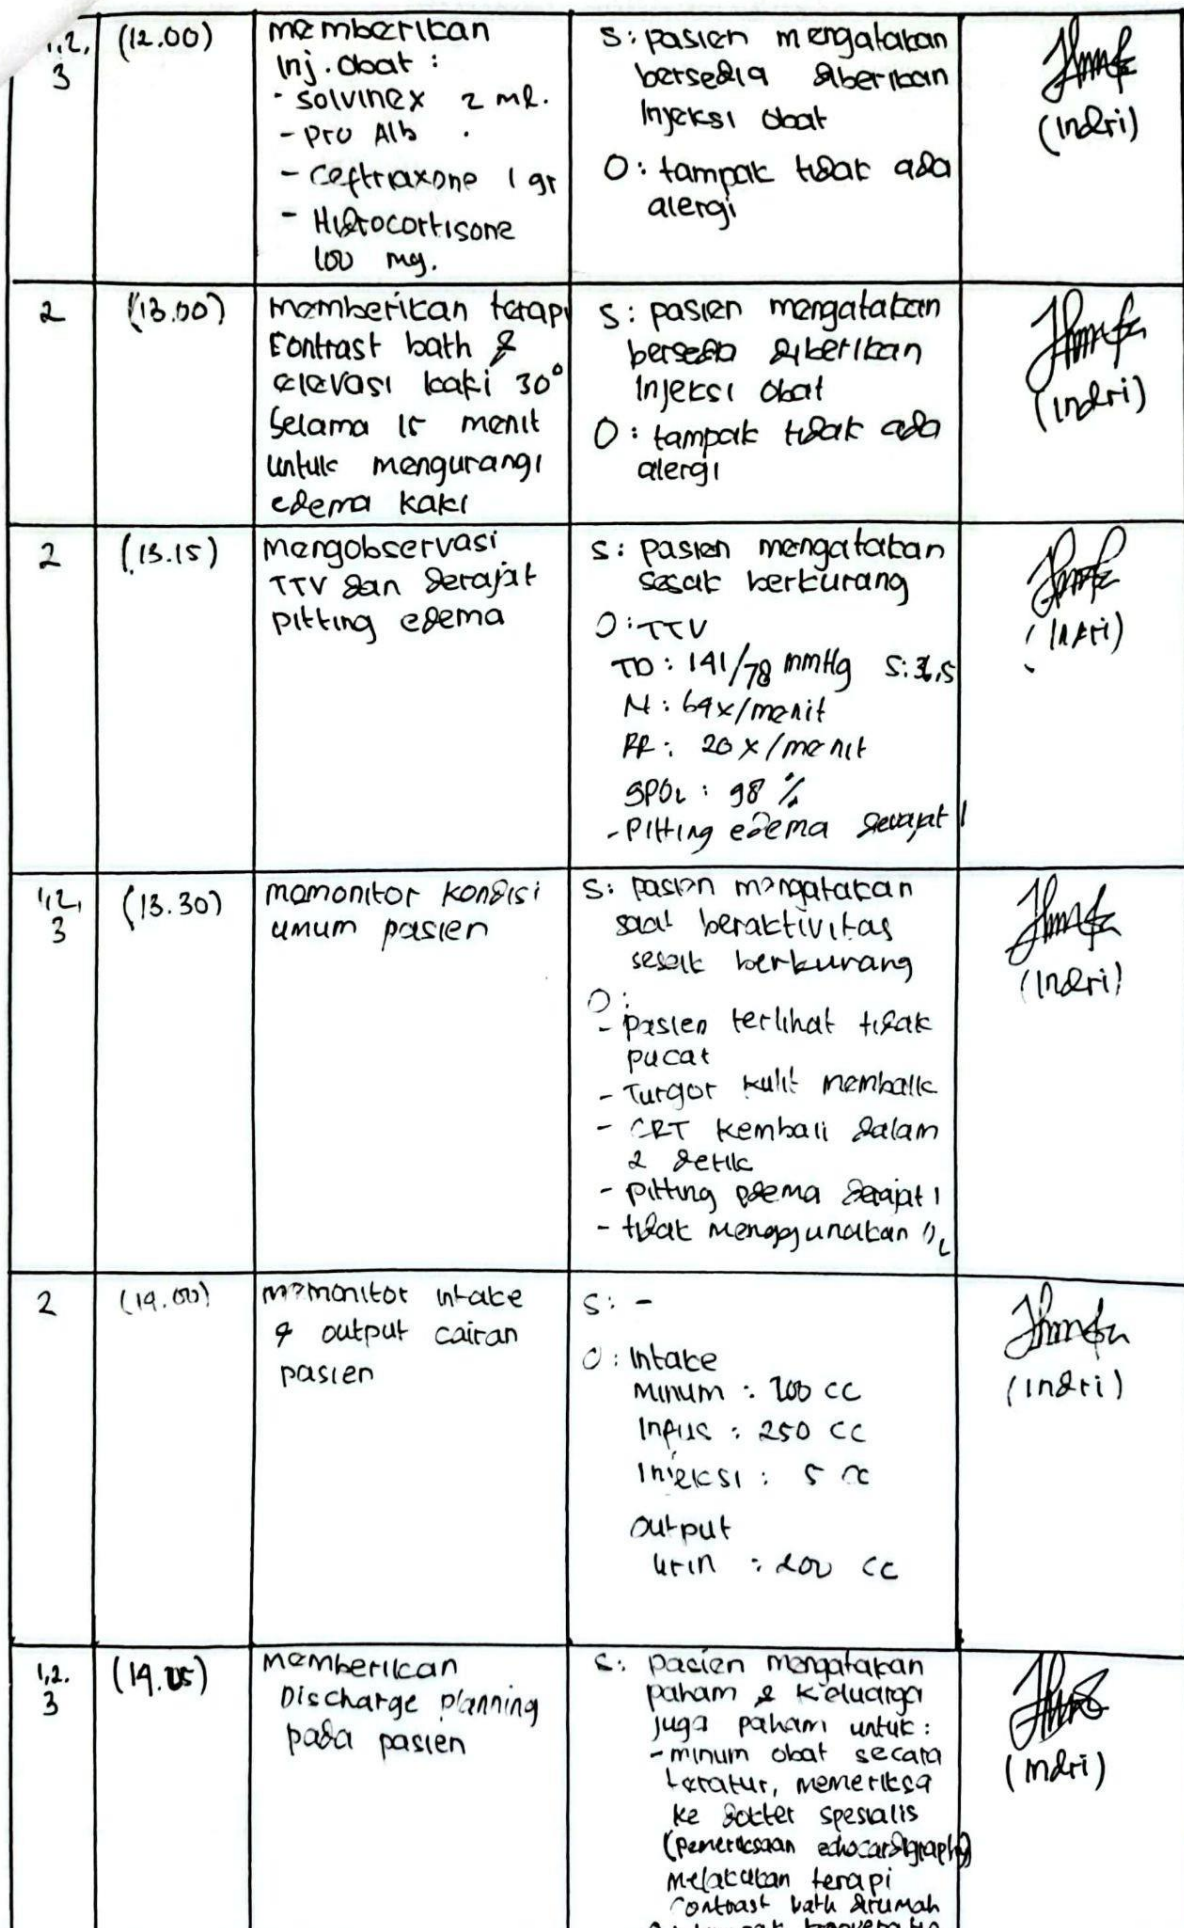 1,2,
3
(12.00)
memberikan
Inj. Obat :
- Solvinex 2 ml.
- Pro Alb .
- Ceftriaxone 1 gr
- Hidrocortisone
100 mg.
S: pasien mengatakan
bersedia diberikan
Injeksi Obat
O: tampak tidak ada
alergi
(Indri)
2
(13.00)
memberikan terapi
Contrast bath &
elevasi kaki 30°
Selama 15 menit
untuk mengurangi
edema kaki
S: pasien mengatakan
bersedia diberikan
Injeksi Obat
O: tampak tidak ada
alergi
(Indri)
2
(13.15)
Mengobservasi
TTV dan derajat
pitting edema
S: pasien mengatakan
sesak berkurang
O: TTV
TD: 141/78 mmHg S: 36,5
N: 64x/menit
RR: 20x/menit
SPO2: 98 %
- Pitting edema derajat 1
(Indri)
1,2,
3
(13.30)
memonitor kondisi
umum pasien
S: pasien mengatakan
saat beraktivitas
sesak berkurang
O:
- pasien terlihat tidak
pucat
- Turgor kulit membaik
- CRT kembali dalam
2 detik
- pitting edema derajat 1
- tidak menggunakan O2
(Indri)
2
(14.00)
memonitor intake
& output cairan
pasien
S: -
O: Intake
Minum : 200 cc
Infus : 250 cc
Injeksi : 5 cc
Output
Urin : 200 cc
(Indri)
1,2.
3
(14.05)
memberikan
Discharge planning
pada pasien
S: pasien mengatakan
paham & keluarga
juga paham untuk:
- minum obat secara
teratur, memeriksa
ke dokter spesialis
(pemeriksaan echocardigraphy)
melakukan terapi
Contrast bath dirumah
(Indri)